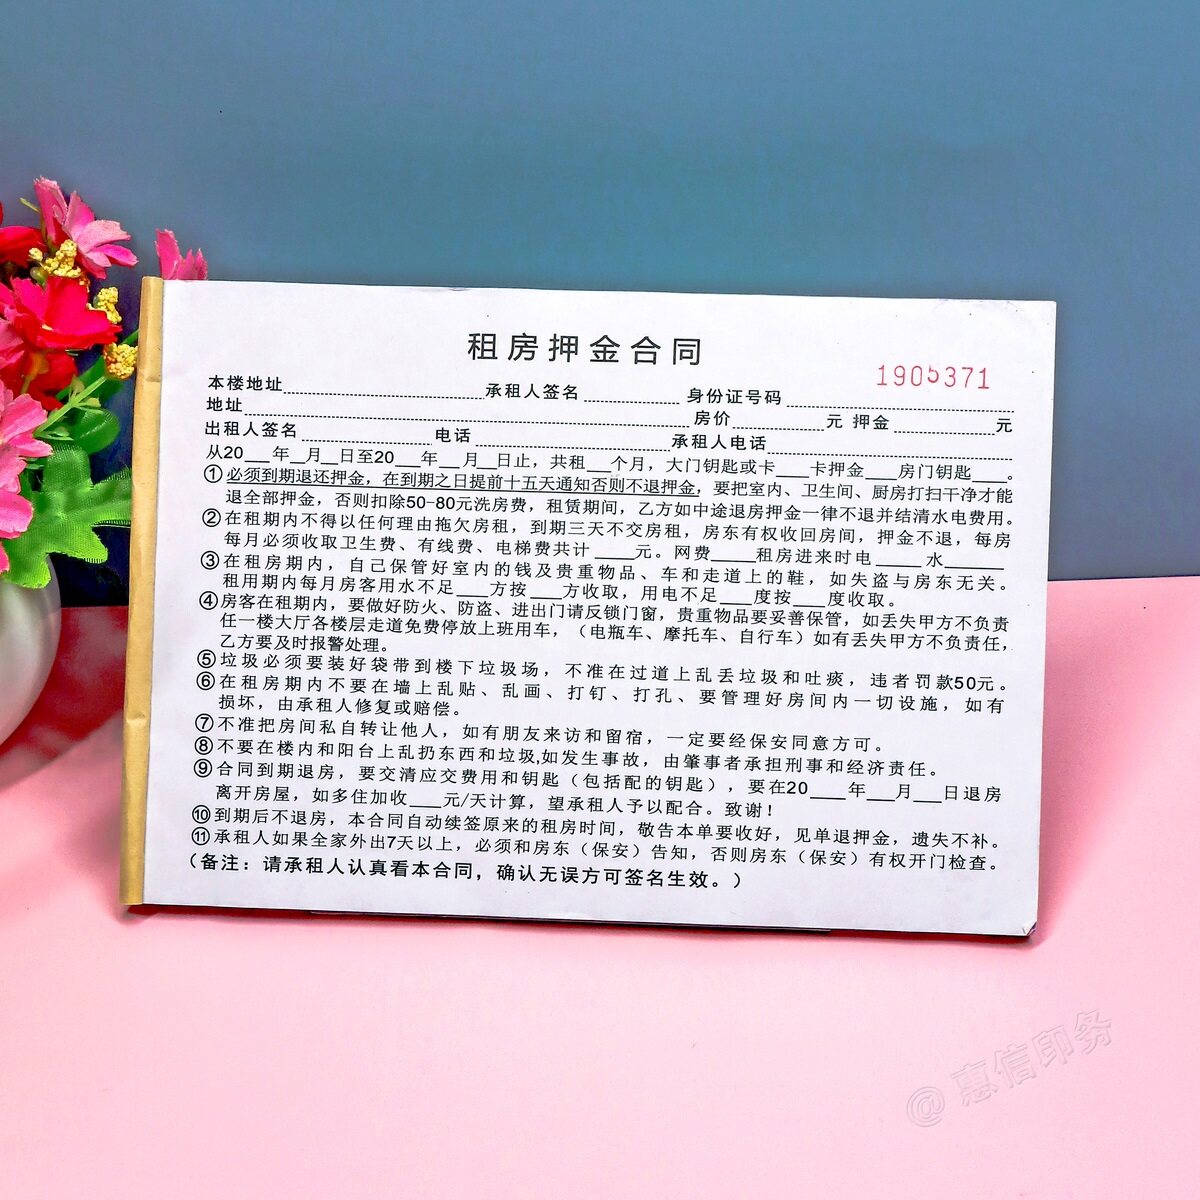 租房押金合同
1905371
本楼地址 承租人签名 身份证号码
地址 房价 元 押金 元
出租人签名 电话 承租人电话
从20___年__月__日至20___年__月__日止，共租__个月，大门钥匙或卡___卡押金___房门钥匙___。
①必须到期退还押金，在到期之日提前十五天通知否则不退押金，要把室内、卫生间、厨房打扫干净才能
退全部押金，否则扣除50-80元洗房费，租赁期间，乙方如中途退房押金一律不退并结清水电费用。
②在租期内不得以任何理由拖欠房租，到期三天不交房租，房东有权收回房间，押金不退，每房
每月必须收取卫生费、有线费、电梯费共计____元。网费____租房进来时电_____水______
③在租房期内，自己保管好室内的钱及贵重物品、车和走道上的鞋，如失盗与房东无关。
租用期内每月房客用水不足___方按___方收取，用电不足___度按___度收取。
④房客在租期内，要做好防火、防盗、进出门请反锁门窗，贵重物品要妥善保管，如丢失甲方不负责
任一楼大厅各楼层走道免费停放上班用车，（电瓶车、摩托车、自行车）如有丢失甲方不负责任，
乙方要及时报警处理。
⑤垃圾必须要装好袋带到楼下垃圾场，不准在过道上乱丢垃圾和吐痰，违者罚款50元。
⑥在租房期内不要在墙上乱贴、乱画、打钉、打孔、要管理好房间内一切设施，如有
损坏，由承租人修复或赔偿。
⑦不准把房间私自转让他人，如有朋友来访和留宿，一定要经保安同意方可。
⑧不要在楼内和阳台上乱扔东西和垃圾,如发生事故，由肇事者承担刑事和经济责任。
⑨合同到期退房，要交清应交费用和钥匙（包括配的钥匙），要在20____年___月___日退房
离开房屋，如多住加收___元/天计算，望承租人予以配合。致谢！
⑩到期后不退房，本合同自动续签原来的租房时间，敬告本单要收好，见单退押金，遗失不补。
⑪承租人如果全家外出7天以上，必须和房东（保安）告知，否则房东（保安）有权开门检查。
（备注：请承租人认真看本合同，确认无误方可签名生效。）
@惠信印务